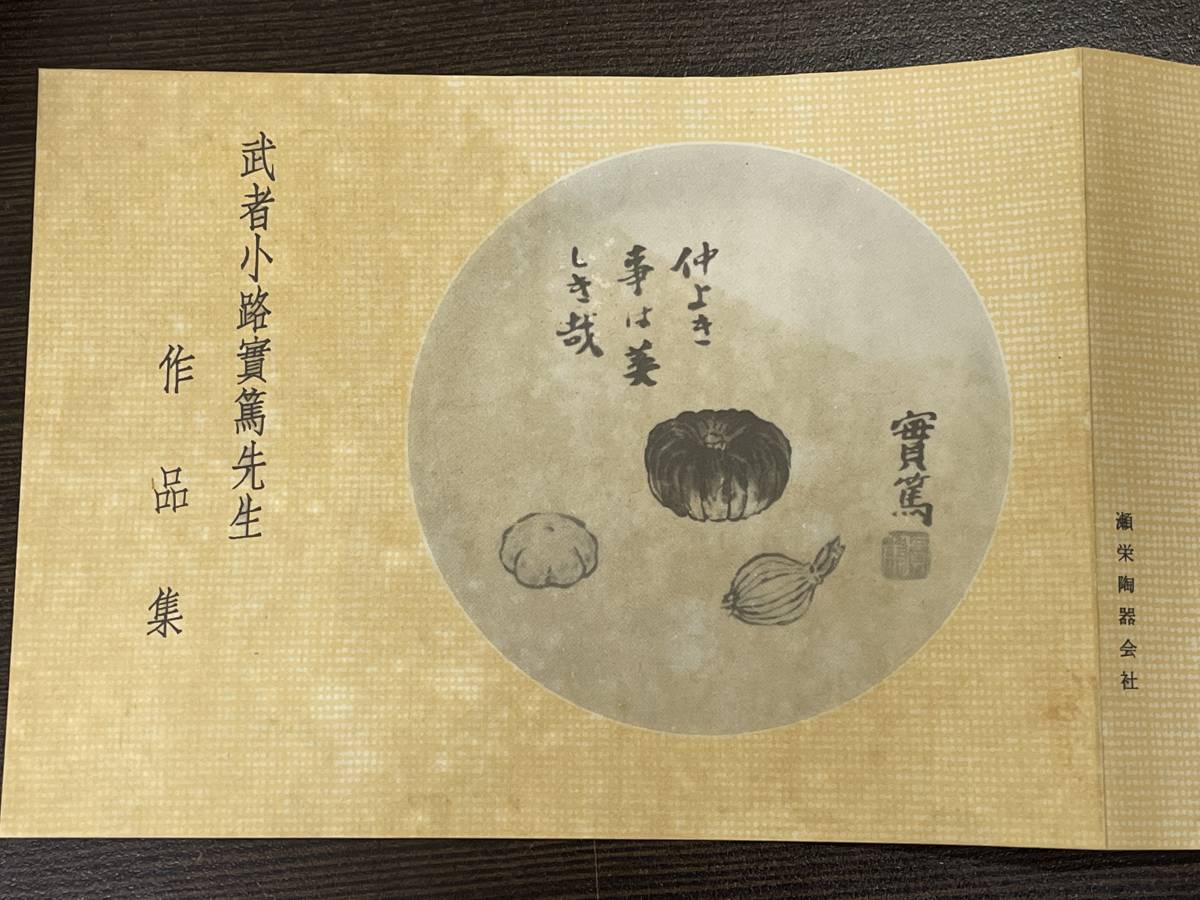 武者小路實篤先生
作品集
仲よき
事は美
しき哉
實篤
瀬栄陶器会社